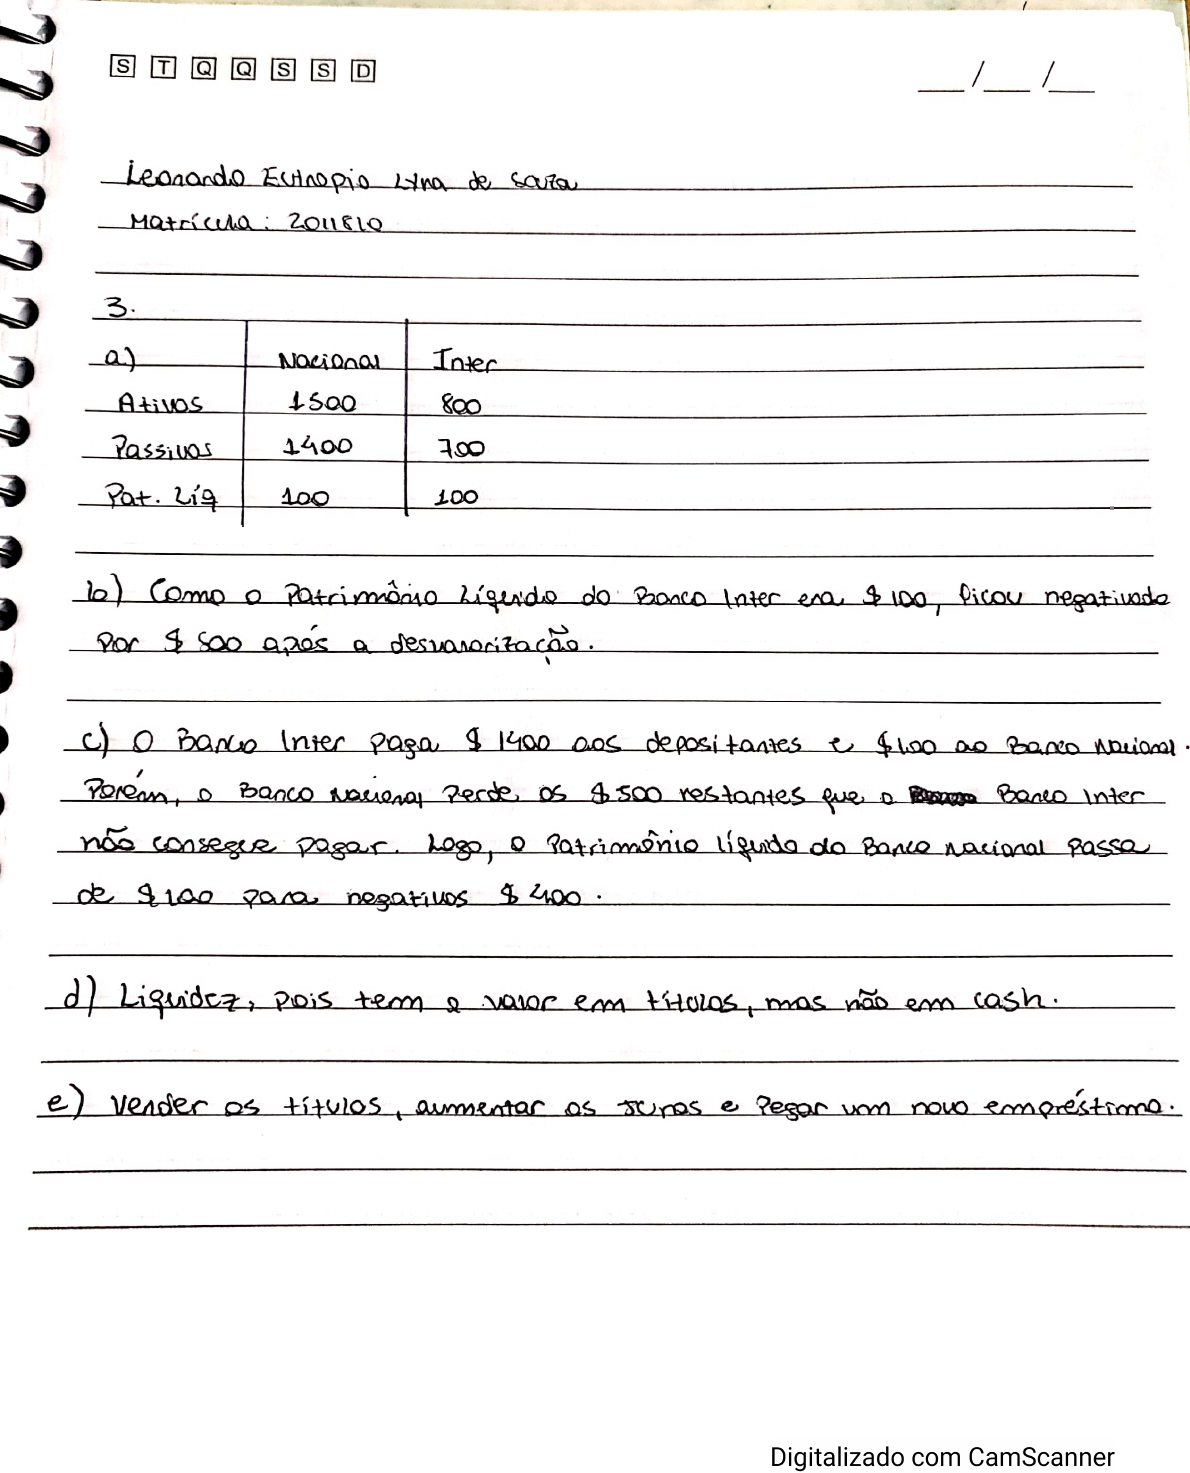 S T Q Q S S D
__/__/__
Leonardo Eutropio Lyra de Souza
Matrícula: 2011810
3.
a) Nacional Inter
Ativos 1500 800
Passivos 1400 700
Pat. Líq 100 100
b) Como o Patrimônio Líquido do Banco Inter era $100, ficou negativado
por $500 após a desvalorização.
c) O Banco Inter paga $1400 aos depositantes e $100 ao Banco Nacional.
Porém, o Banco Nacional perde os $500 restantes que o Banco Inter
não consegue pagar. Logo, o Patrimônio líquido do Banco Nacional passa
de $100 para negativos $400.
d) Liquidez, pois tem o valor em títulos, mas não em cash.
e) Vender os títulos, aumentar os juros e pegar um novo empréstimo.
Digitalizado com CamScanner